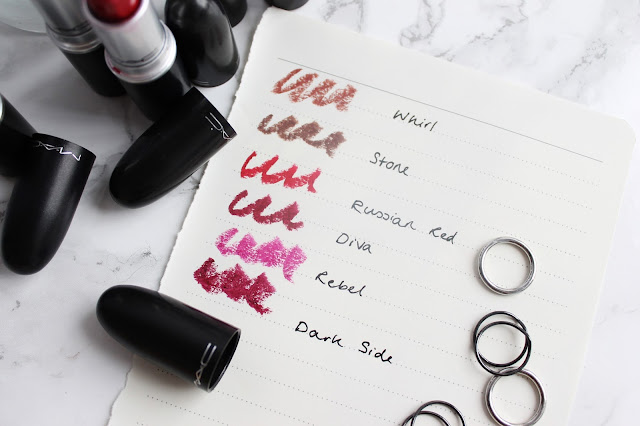 Whirl
Stone
Russian Red
Diva
Rebel
Dark Side
MAC
MAC